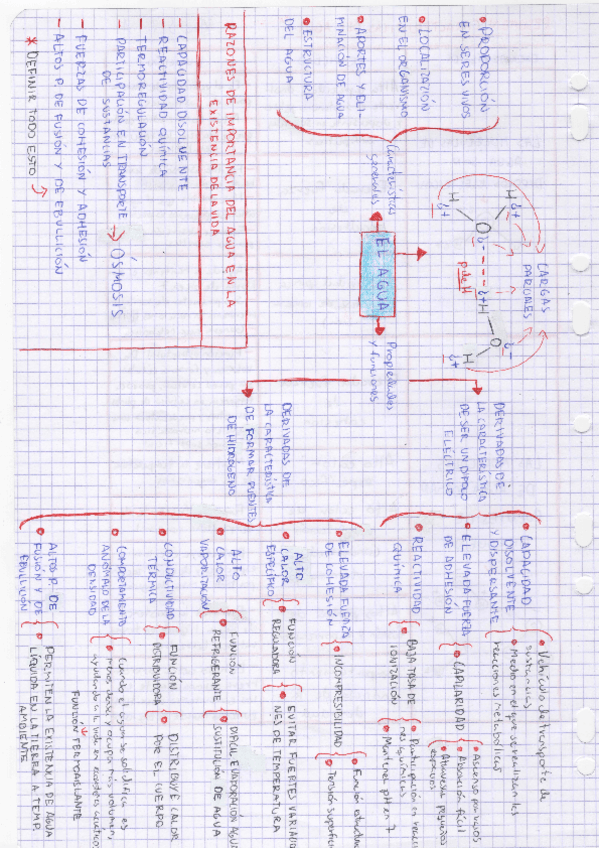 • PROPORCIÓN
EN SERES VIVOS
• LOCALIZACIÓN
EN EL ORGANISMO
• APORTES Y ELI-
MINACIÓN DE AGUA
• ESTRUCTURA
DEL AGUA
Características
generales
EL AGUA
CARGAS
PARCIALES
H
δ+
H
δ+
O
δ-
p.de H
δ+
H
O
δ-
H
δ+
Propiedades
y funciones
DERIVADAS DE
LA CARACTERÍSTICA
DE SER UN DIPOLO
ELÉCTRICO
• CAPACIDAD
DISOLVENTE
Y DISPERSANTE
• Vehículo de transporte de
sustancias
• Medio en el que se realizan las
reacciones metabólicas
• ELEVADA FUERZA
DE ADHESIÓN
• CAPILARIDAD
• Ascenso por vasos
• Absorción fácil
• Atraviesa pequeños
espacios
• REACTIVIDAD
QUÍMICA
• BAJA TASA DE
IONIZACIÓN
• Participación en reaccio
nes químicas
• Mantener pH en 7
DERIVADAS DE
LA CARACTERÍSTICA
DE FORMAR PUENTES
DE HIDRÓGENO
• ELEVADA FUERZA
DE COHESIÓN
• INCOMPRESIBILIDAD
• Función estructural
• Tensión superficial
• ALTO
CALOR
ESPECÍFICO
• FUNCIÓN
REGULADORA
• EVITAR FUERTES VARIACIO
NES DE TEMPERATURA
• ALTO
CALOR
VAPORIZACIÓN
• FUNCIÓN
REFRIGERANTE
• DIFÍCIL EVAPORACIÓN AGUA
SUSTITUCIÓN DE AGUA
• CONDUCTIVIDAD
TÉRMICA
• FUNCIÓN
DISTRIBUIDORA
• DISTRIBUYE CALOR
POR EL CUERPO
• COMPORTAMIENTO
ANÓMALO DE LA
DENSIDAD
• Cuando el agua se solidifica es
menos densa y ocupa más volumen,
ayudando a la vida en medios acuáticos
FUNCIÓN TERMOAISLANTE
• ALTOS P. DE
FUSIÓN Y DE
EBULLICIÓN
• PERMITEN LA EXISTENCIA DE AGUA
LÍQUIDA EN LA TIERRA A TEMP.
AMBIENTE
RAZONES DE IMPORTANCIA DEL AGUA EN LA
EXISTENCIA DE LA VIDA
- CAPACIDAD DISOLVENTE
- REACTIVIDAD QUÍMICA
- TERMOREGULACIÓN
- PARTICIPACIÓN EN TRANSPORTE
DE SUSTANCIAS → ÓSMOSIS
- FUERZAS DE COHESIÓN Y ADHESIÓN
- ALTOS P. DE FUSIÓN Y DE EBULLICIÓN
* DEFINIR TODO ESTO